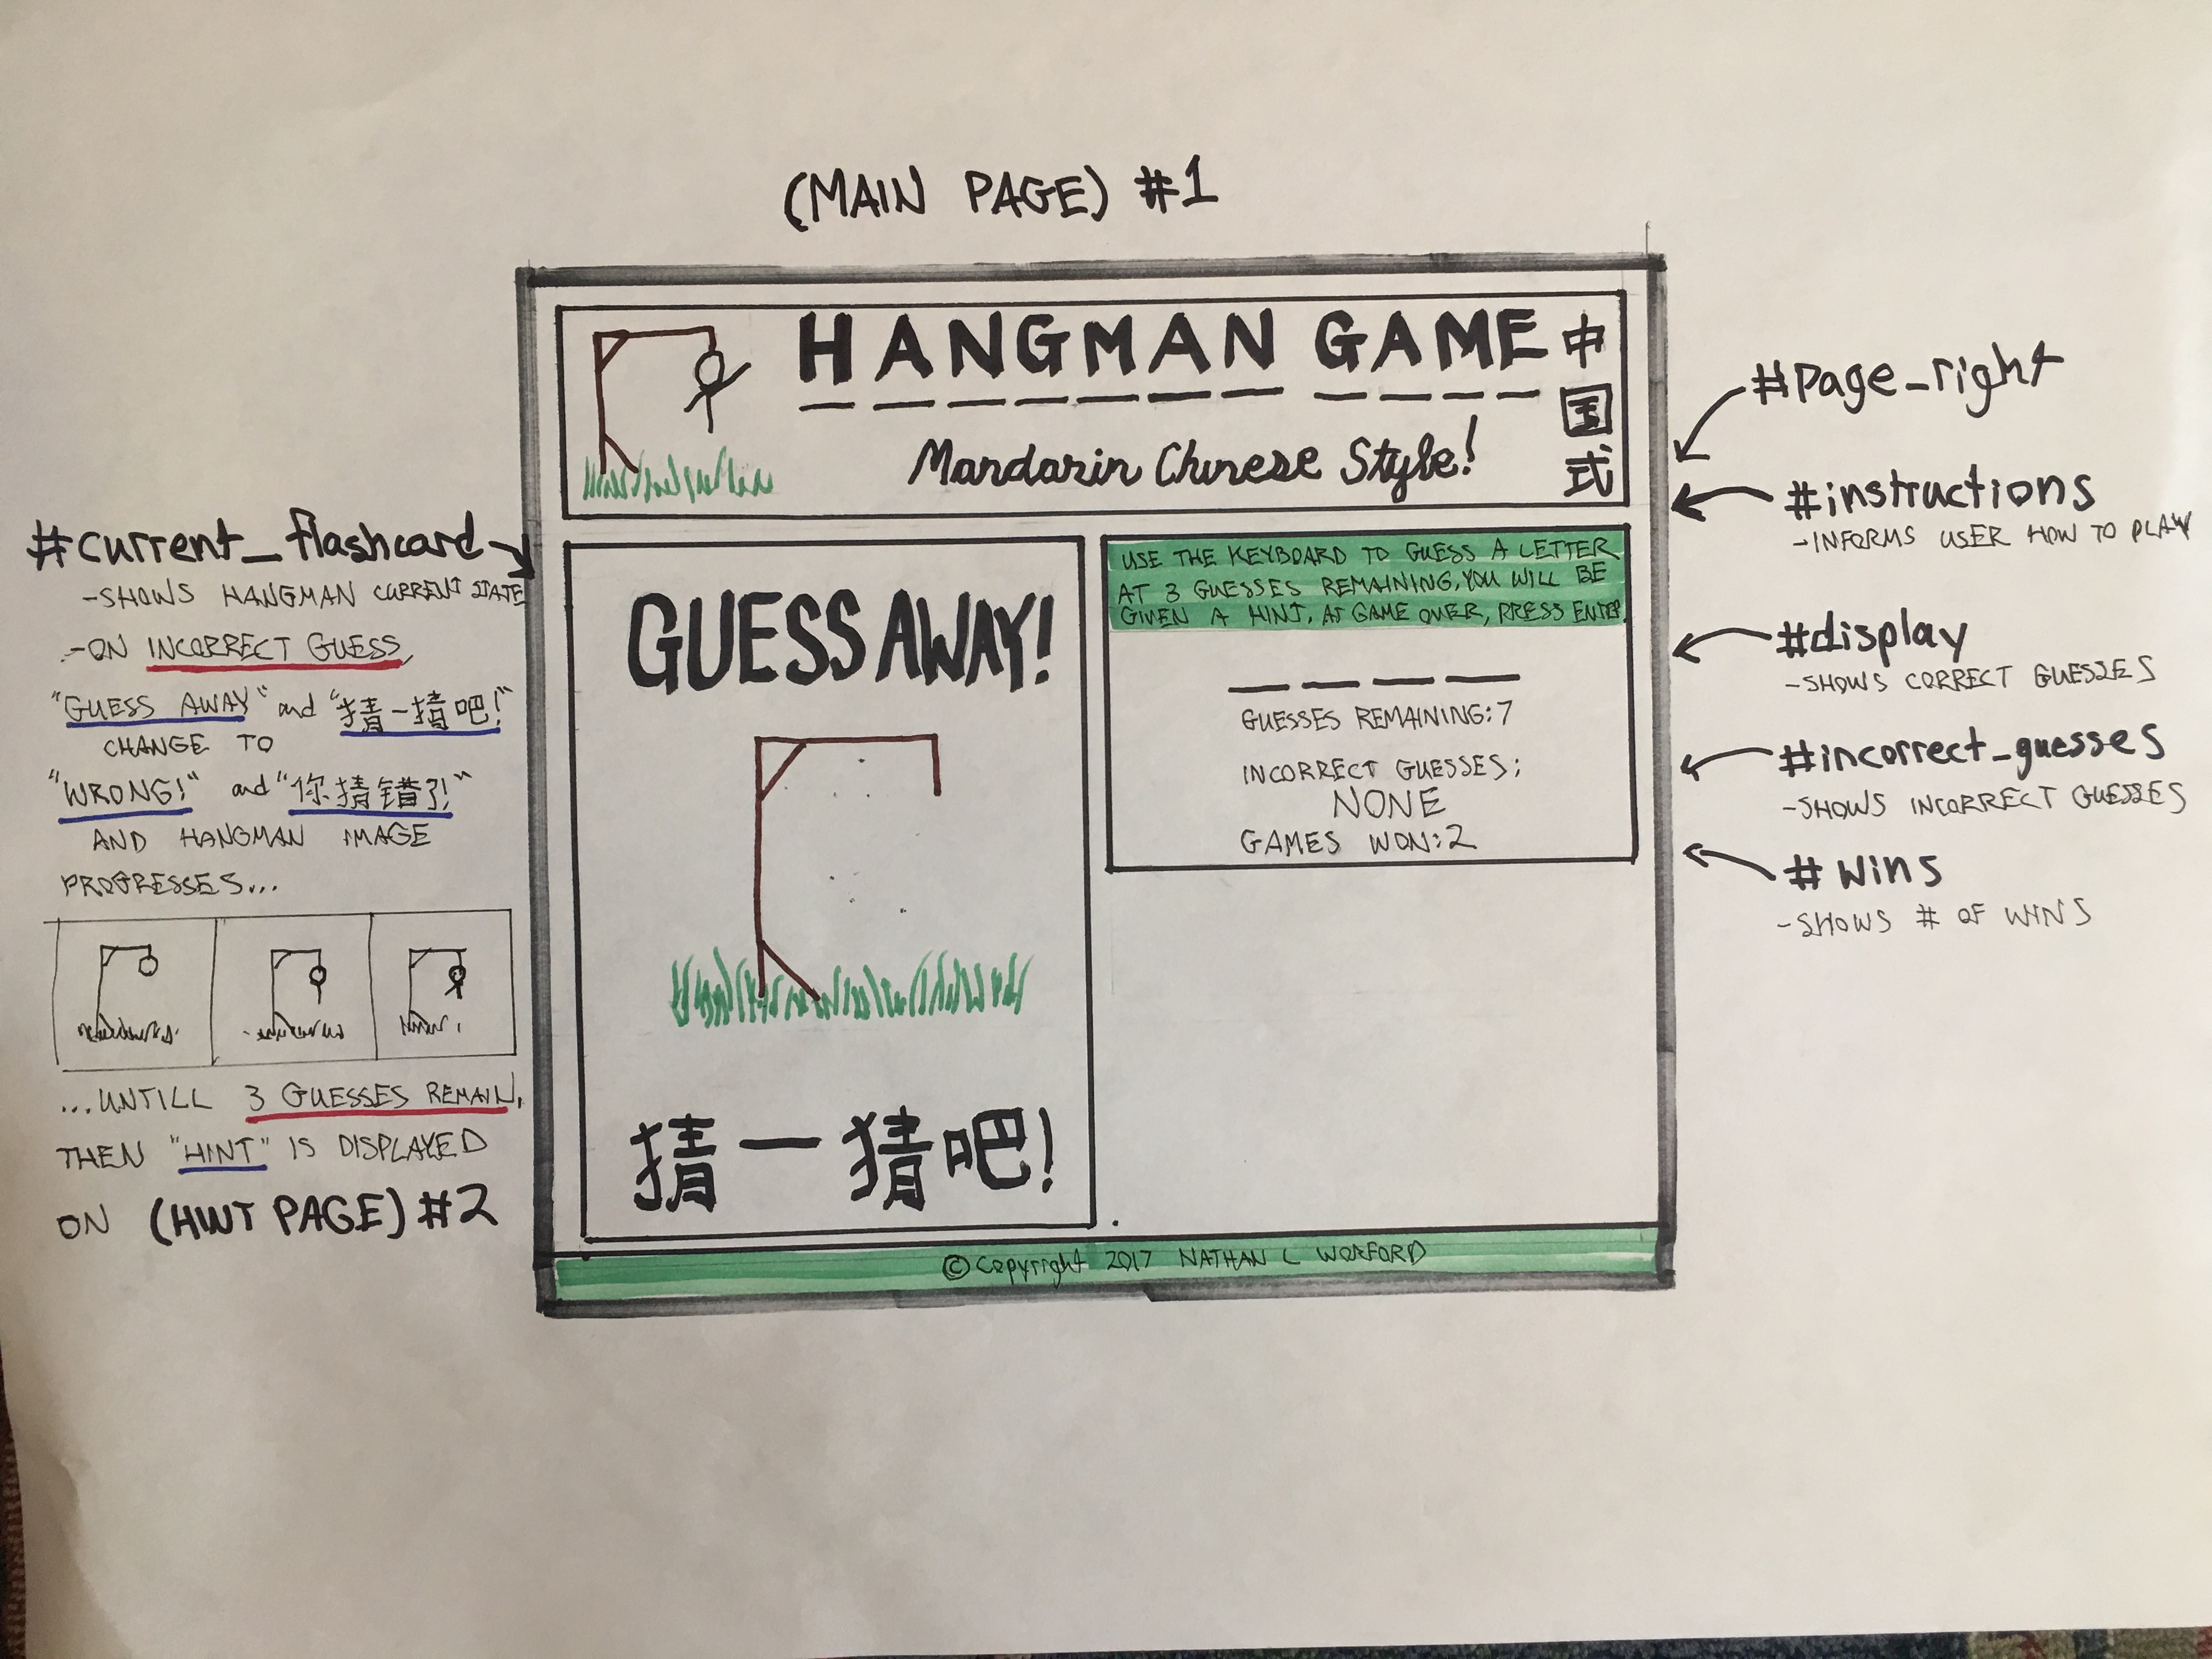 (MAIN PAGE) #1
HANGMAN GAME
Mandarin Chinese Style!
中
国
式
#current_flashcard
-SHOWS HANGMAN CURRENT STATE
-ON INCORRECT GUESS,
"GUESS AWAY" and "猜一猜吧!"
CHANGE TO
"WRONG!" and "你猜错了!"
AND HANGMAN IMAGE
PROGRESSES...
...UNTILL 3 GUESSES REMAIN,
THEN "HINT" IS DISPLAYED
ON (HINT PAGE) #2
GUESS AWAY!
猜一猜吧!
USE THE KEYBOARD TO GUESS A LETTER
AT 3 GUESSES REMAINING, YOU WILL BE
GIVEN A HINT. AT GAME OVER, PRESS ENTER.
GUESSES REMAINING: 7
INCORRECT GUESSES:
NONE
GAMES WON: 2
#page_right
#instructions
-INFORMS USER HOW TO PLAY
#display
-SHOWS CORRECT GUESSES
#incorrect_guesses
-SHOWS INCORRECT GUESSES
#wins
-SHOWS # OF WINS
©Copyright 2017 NATHAN L WORFORD